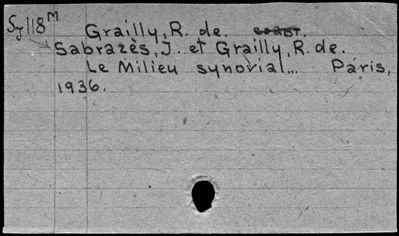 Sy118M Grailly, R. de.
Sabrazès, J. et Grailly, R. de.
Le Milieu synovial... Paris,
1936.